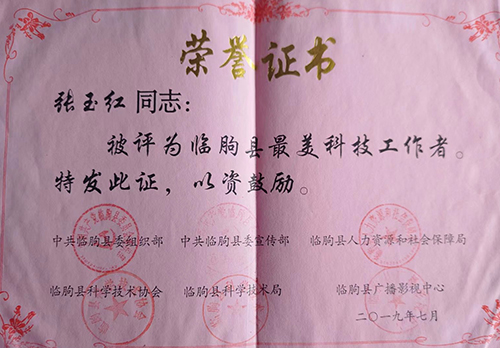 荣誉证书
张玉红同志：
被评为临朐县最美科技工作者。
特发此证，以资鼓励。
中共临朐县委组织部 中共临朐县委宣传部 临朐县人力资源和社会保障局
临朐县科学技术协会 临朐县科学技术局 临朐县广播影视中心
二〇一九年七月